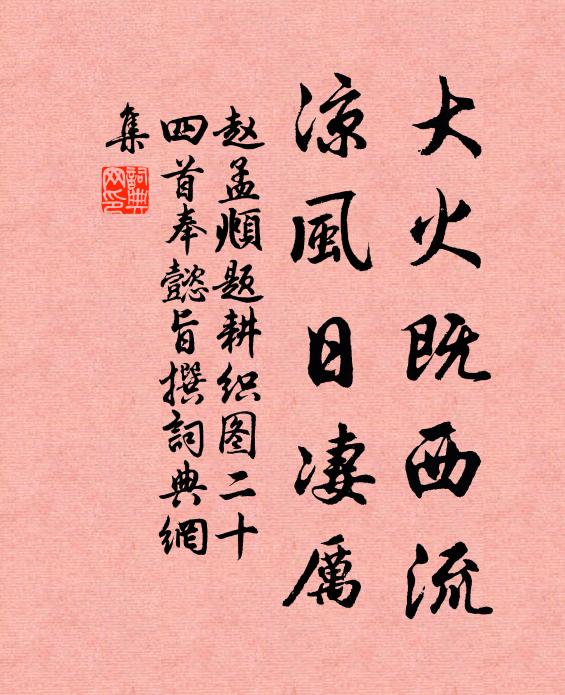 大火既西流
凉風日淒厲
赵孟頫题耕织图二十
四首奉懿旨撰詞典網
集
詞典
网印